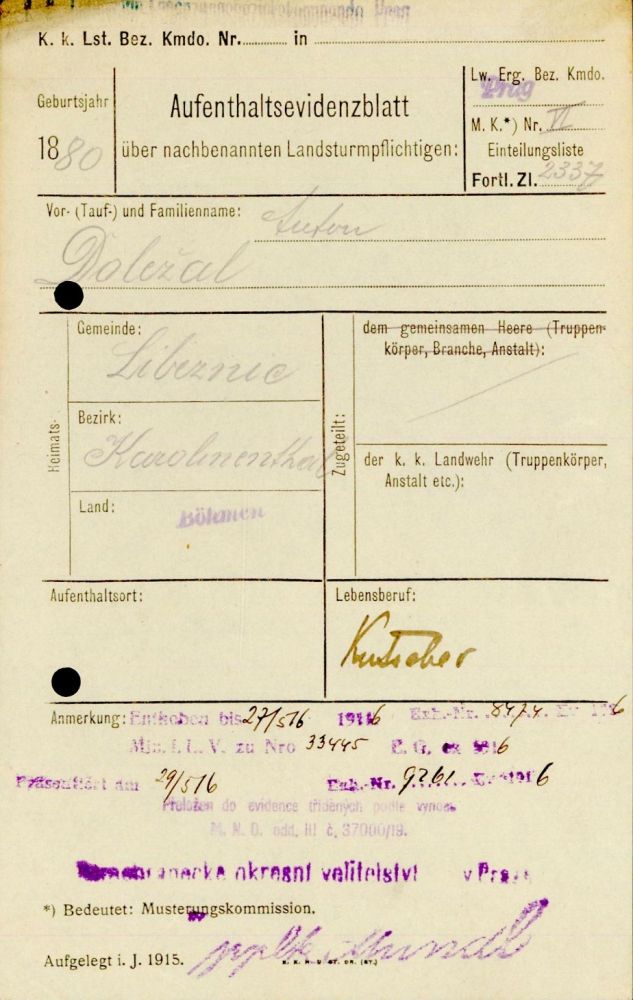 K. k. Lst. Bez. Kmdo. Nr. in
Lw. Erg. Bez. Kmdo.
Prag
Geburtsjahr
1880
Aufenthaltsevidenzblatt
über nachbenannten Landsturmpflichtigen:
M. K.*) Nr. VI
Einteilungsliste
Fortl. Zl. 2337
Vor- (Tauf-) und Familienname: Anton
Doležal
Heimats-
Gemeinde:
Libeznic
Bezirk:
Karolinenthal
Land:
Böhmen
Zugeteilt:
dem gemeinsamen Heere (Truppen-
körper, Branche, Anstalt):
der k. k. Landwehr (Truppenkörper,
Anstalt etc.):
Aufenthaltsort:
Lebensberuf:
Kutscher
Anmerkung: Enthoben bis 27/5 16 1916 Exh.-Nr. 8474
Min. f. L. V. zu Nro 33445 E. G. ex 1916
Präsentiert am 29/5 16 Exh.-Nr. 9261 1916
Přeložen do evidence tříděných podle vynos.
M. N. O. odd. III č. 37000/19.
okresní velitelství v Praze
*) Bedeutet: Musterungskommission.
Aufgelegt i. J. 1915.